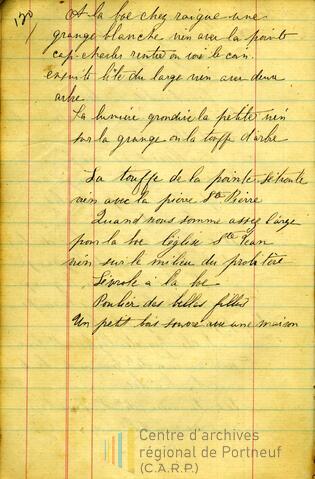 170
A la boe chez raique une
grange blanche vien avec la pointe
cap charles rentre on voi le coin
ensuite l'ile du large vien avec deux
arbre
La lumière grondine la petite vien
sur la grange ou la touffe d'arbre
La touffe de la pointe
vien avec la pierre Ste Pierre
Quand nous somme assez large
pour la boe l'église Ste Jean
vien sur le milieu du
a la boe
des belles filles
Un petit bois avec une maison
Centre d'archives
régional de Portneuf
(C.A.R.P.)